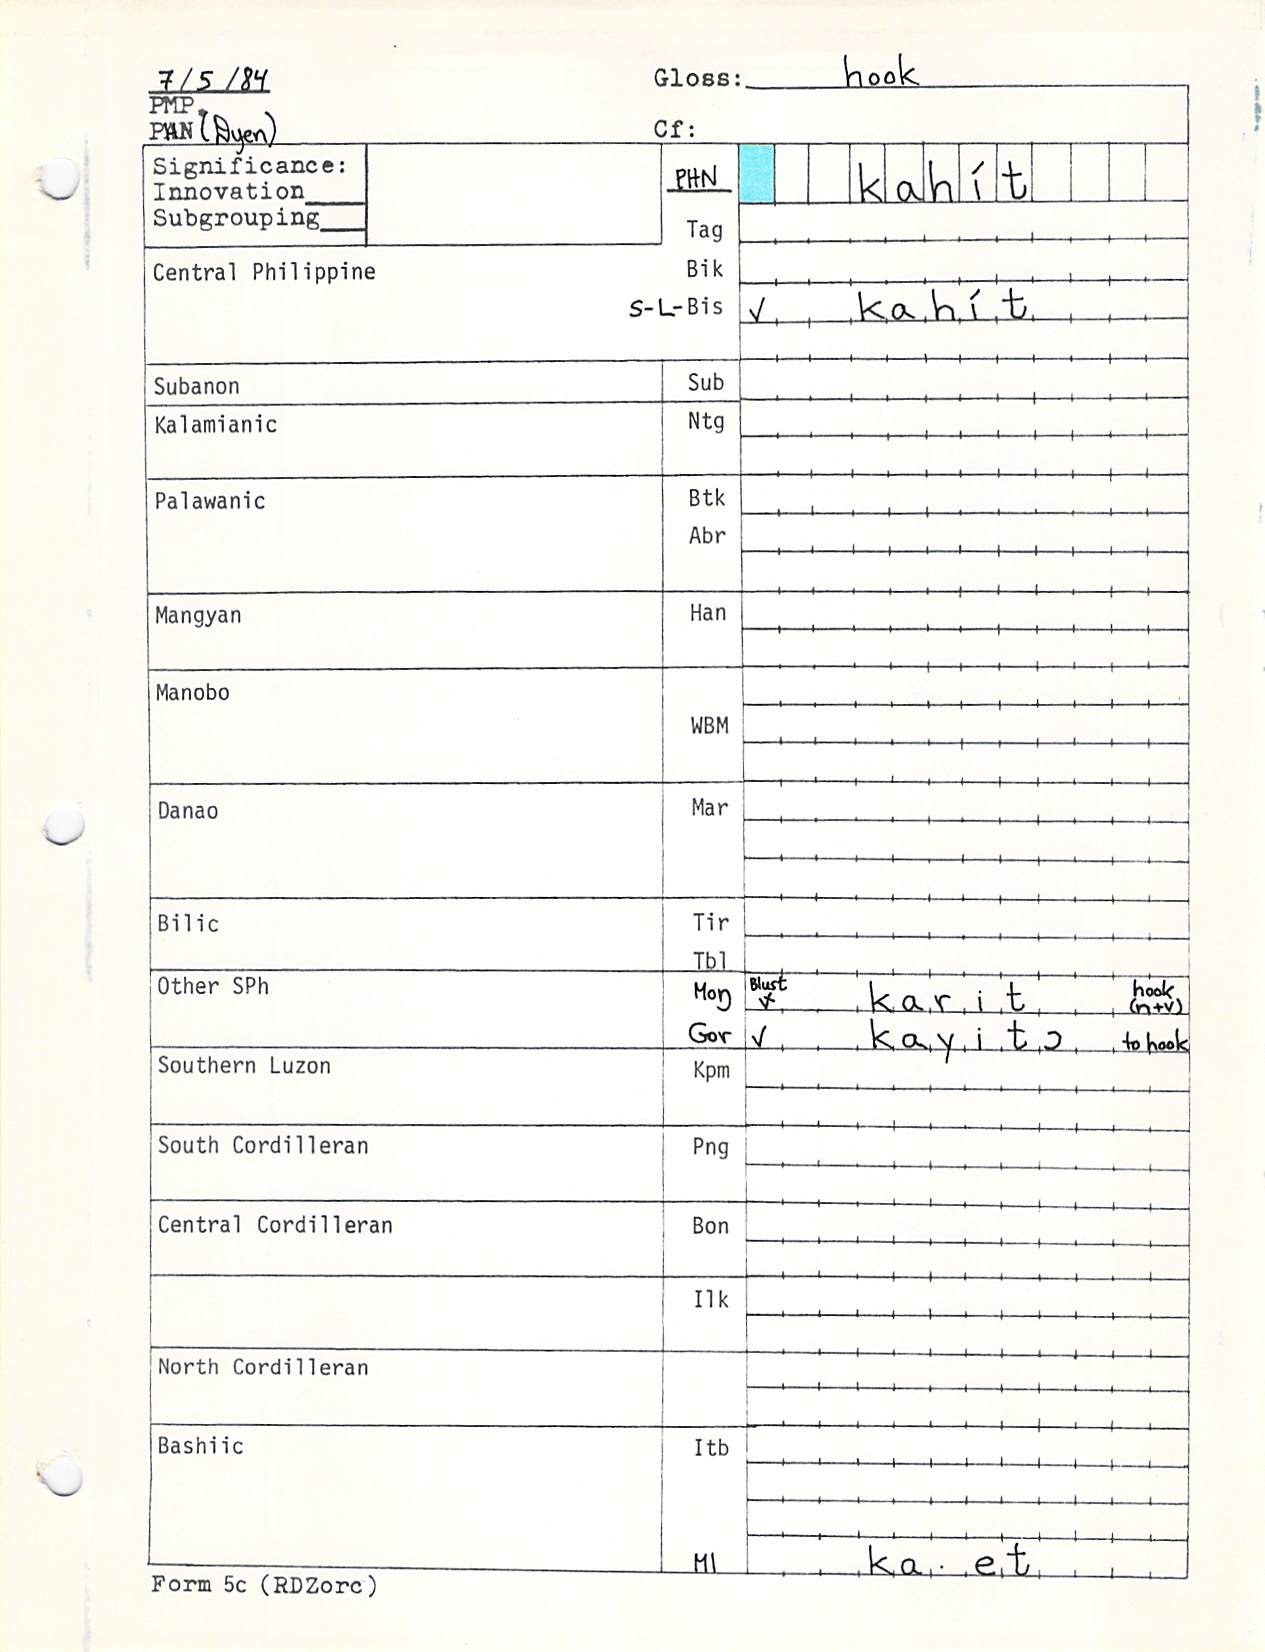 7/5/84 Gloss: hook
PMP
PAN (Dyen) Cf:
Significance: PHN kahít
Innovation
Subgrouping Tag
Central Philippine Bik
S-L-Bis ✓ kahít
Subanon Sub
Kalamianic Ntg
Palawanic Btk
Abr
Mangyan Han
Manobo
WBM
Danao Mar
Bilic Tir
Tbl
Other SPh Moŋ Blust ✓ karit hook (n+v)
Gor ✓ kayitɔ to hook
Southern Luzon Kpm
South Cordilleran Png
Central Cordilleran Bon
Ilk
North Cordilleran
Bashiic Itb
Ml ka·et
Form 5c (RDZorc)